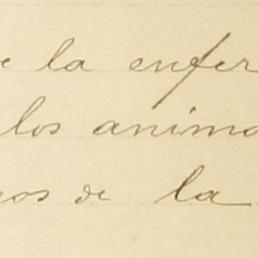 e la enfer
los anima
nos de la